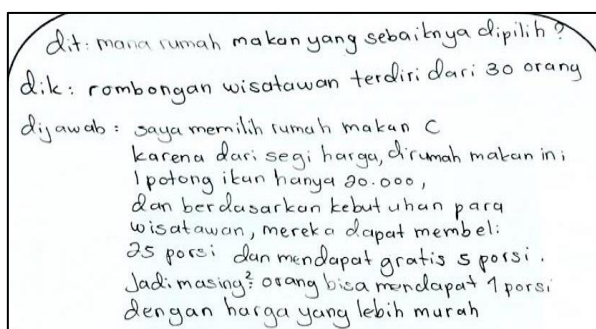 dit: mana rumah makan yang sebaiknya dipilih?
dik: rombongan wisatawan terdiri dari 30 orang
dijawab: saya memilih rumah makan C
karena dari segi harga, dirumah makan ini
1 potong ikan hanya 20.000,
dan berdasarkan kebutuhan para
wisatawan, mereka dapat membeli
25 porsi dan mendapat gratis 5 porsi.
Jadi masing² orang bisa mendapat 1 porsi
dengan harga yang lebih murah